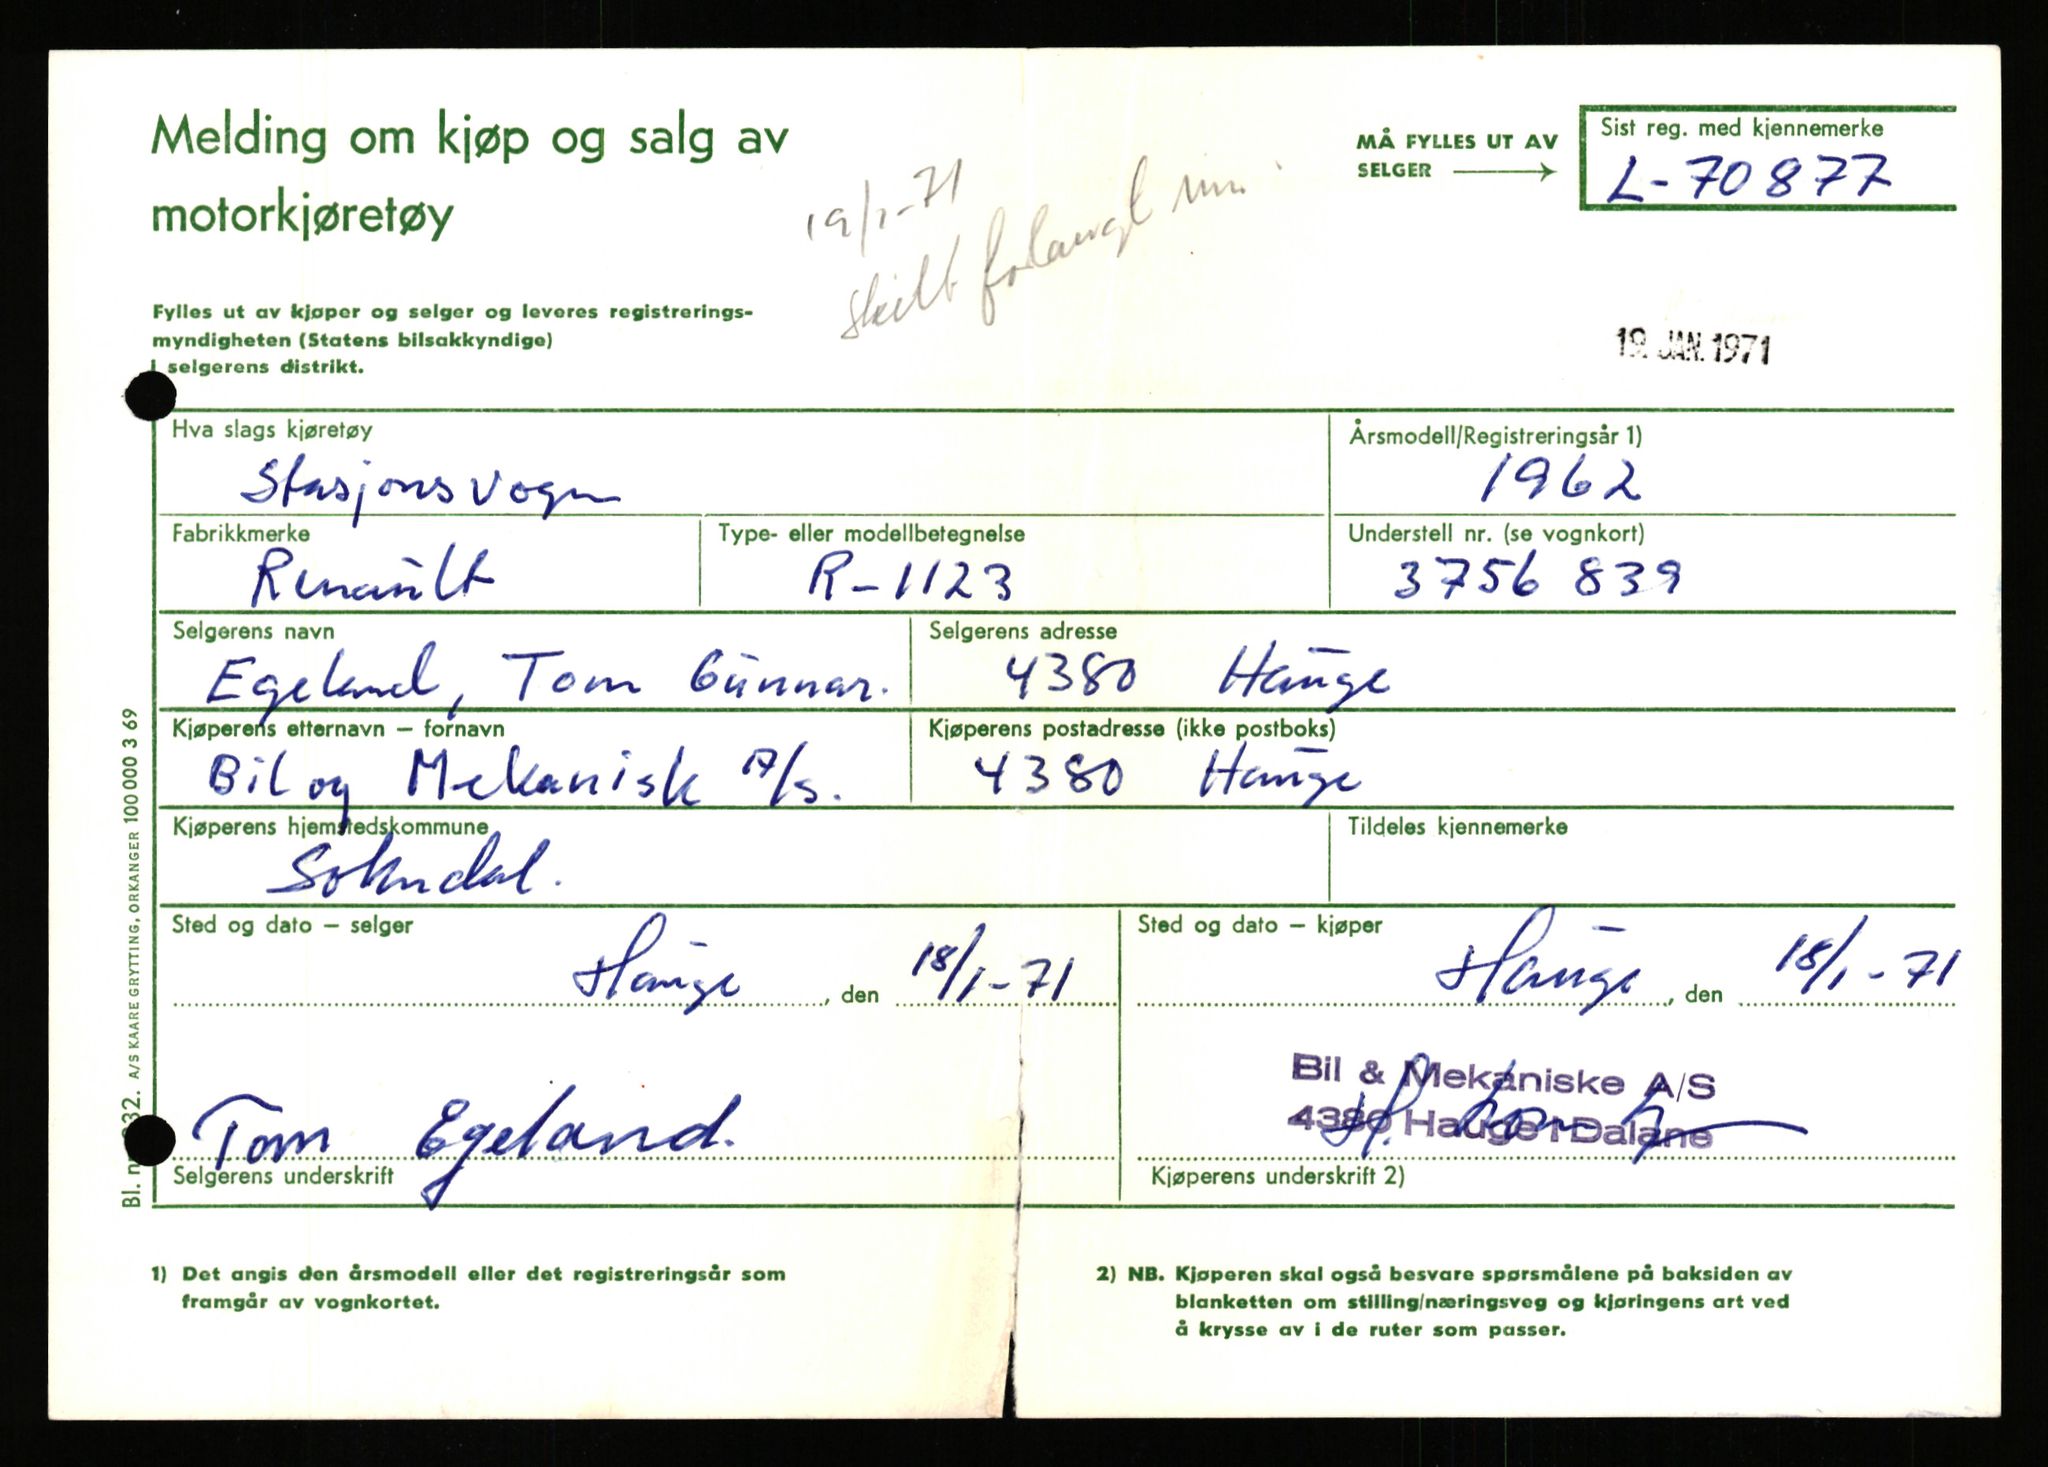 Melding om kjøp og salg av
motorkjøretøy
19/1-71
skilt forlangt inn.
MÅ FYLLES UT AV
SELGER
Sist reg. med kjennemerke
L-70877
Fylles ut av kjøper og selger og leveres registrerings-
myndigheten (Statens bilsakkyndige)
i selgerens distrikt.
19. JAN. 1971
Hva slags kjøretøy
Stasjonsvogn
Årsmodell/Registreringsår 1)
1962
Fabrikkmerke
Renault
Type- eller modellbetegnelse
R-1123
Understell nr. (se vognkort)
3756839
Selgerens navn
Egeland, Tom Gunnar.
Selgerens adresse
4380 Hauge
Kjøperens etternavn – fornavn
Bil og Mekanisk A/S.
Kjøperens postadresse (ikke postboks)
4380 Hauge
Kjøperens hjemstedskommune
Sokndal.
Tildeles kjennemerke
Sted og dato – selger
Hauge, den 18/1-71
Sted og dato – kjøper
Hauge, den 18/1-71
Tom Egeland.
Selgerens underskrift
Bil & Mekaniske A/S
4380 Hauge i Dalane
Kjøperens underskrift 2)
1) Det angis den årsmodell eller det registreringsår som
framgår av vognkortet.
2) NB. Kjøperen skal også besvare spørsmålene på baksiden av
blanketten om stilling/næringsveg og kjøringens art ved
å krysse av i de ruter som passer.
A/S KAARE GRYTTING, ORKANGER 100 000 3 69